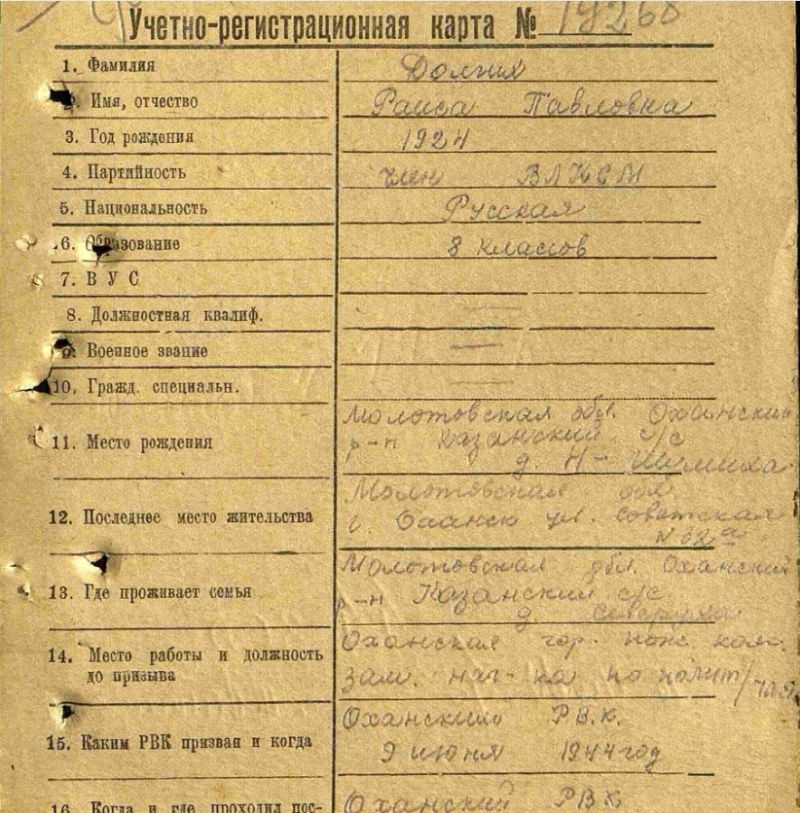 Учетно-регистрационная карта №
1. Фамилия Долгих
2. Имя, отчество Раиса Павловна
3. Год рождения 1924
4. Партийность член ВЛКСМ
5. Национальность Русская
6. Образование 8 классов
7. ВУС
8. Должностная квалиф.
9. Военное звание —
10. Гражд. специальн.
Молотовская обл. Оханский
11. Место рождения р-н Казанский с/с
д. Н-
Молотовская обл.
12. Последнее место жительства г. Оханск ул. Советская
Молотовская обл. Оханский
13. Где проживает семья р-н Казанский с/с
д.
14. Место работы и должность Оханская гор. пож. ком.
до призыва зам. нач-ка по полит/части
Оханским Р.В.К.
15. Каким РВК призван и когда 9 июня 1944 год
16. Когда и где проходил пос- Оханский РВК